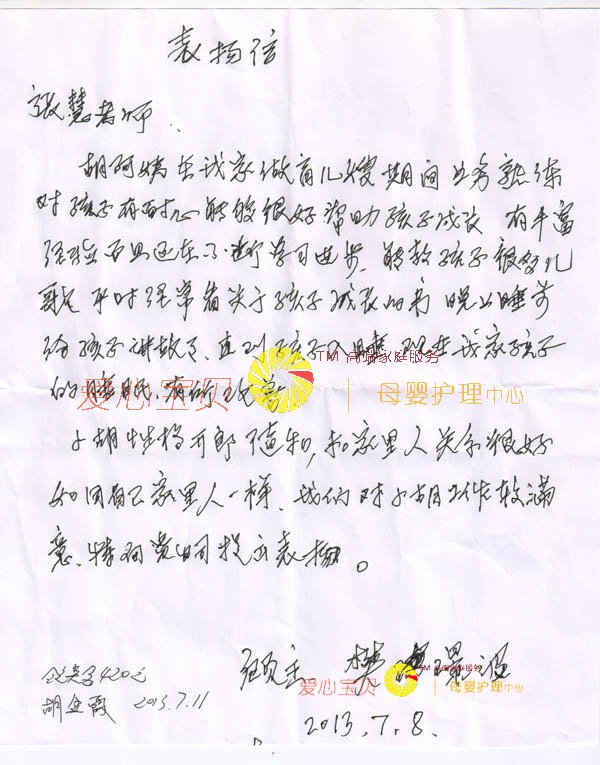 表扬信
张慧老师、
胡阿姨在我家做育儿嫂期间业务熟练
对孩子有耐心能够很好帮助孩子成长 有丰富
经验而且还在不断学习进步、能教孩子很多儿
歌 平时经常看关于孩子成长的书 晚上睡前
给孩子讲故事、直到孩子入睡 现在我家孩子
TM 高端家庭服务
的睡眠有所改善
爱心宝贝 | 母婴护理中心
小胡性格开郎随和,和家里人关系很好
如同自己家里人一样、我们对小胡工作较满
意、特向贵公司提出表扬。
顾主
TM 高端家庭服务
爱心宝贝 | 母婴护理中心
2013.7.8.
420元
胡金霞 2013.7.11